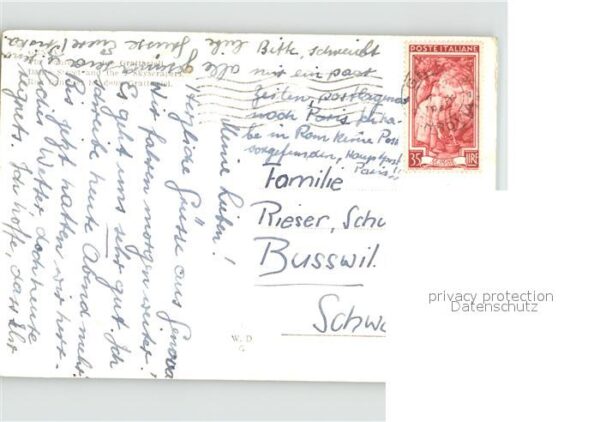 Meine Lieben!
Herzliche Grüsse aus Genova
Wir fahren morgen weiter.
Es geht uns sehr gut. Ich
schreibe heute Abend mehr.
Bis jetzt hatten wir herr-
liches Wetter doch heute
regnets. Ich hoffe, dass Ihr
alle gesund seid
Grüsse Eure
Bitte, schreibt
mir ein paar
Zeilen, postlagernd
nach Paris, ich ha-
be in Rom keine Post
vorgefunden, Hauptpost
Paris!!
Familie
Rieser, Schu
Busswil.
Schw
POSTE ITALIANE
35 LIRE
Street and the Skyscrapers
W. D.
G
privacy protection
Datenschutz